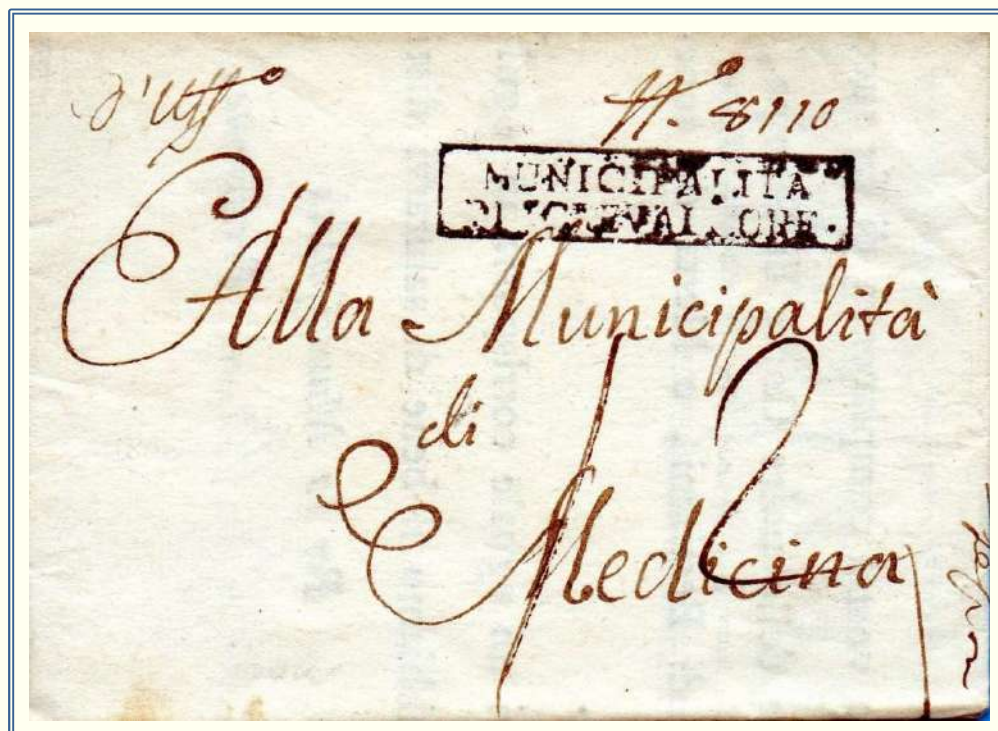 d'Uff.o N.o 8110
MUNICIPALITA
DI CREVALCORE.
Alla Municipalità
di
Medicina
12